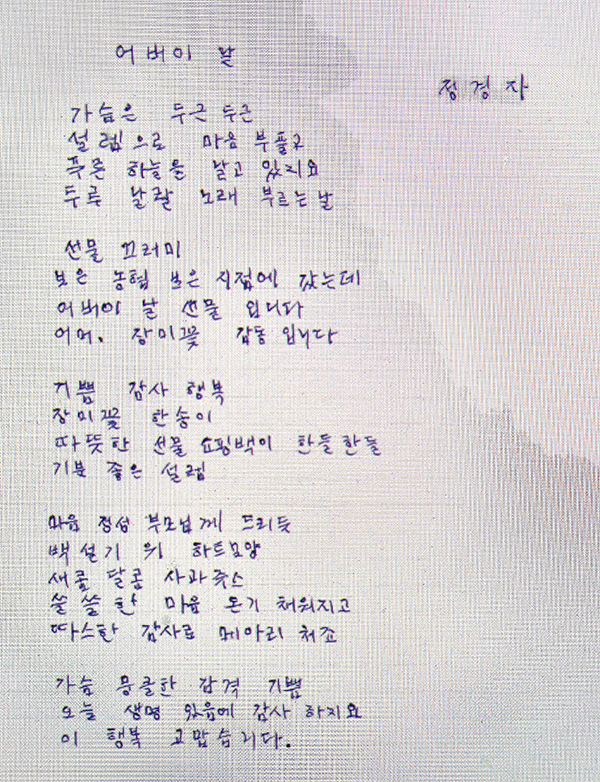 어버이 날
정경자
가슴은 두근 두근
설렘으로 마음 부풀고
푸른 하늘을 날고 있지요
두루 날랄 노래 부르는 날
선물 꾸러미
보은 농협 보은 지점에 갔는데
어버이 날 선물 입니다
어머. 장미꽃 감동 입니다
기쁨 감사 행복
장미꽃 한송이
따뜻한 선물 쇼핑백이 한들한들
기분 좋은 설렘
마음 정성 부모님께 드리듯
백설기 위 하트모양
새콤 달콤 사과쥬스
쓸쓸한 마음 온기 채워지고
따스한 감사로 메아리 쳐요
가슴 뭉클한 감격 기쁨
오늘 생명 있음에 감사 하지요
이 행복 고맙습니다.